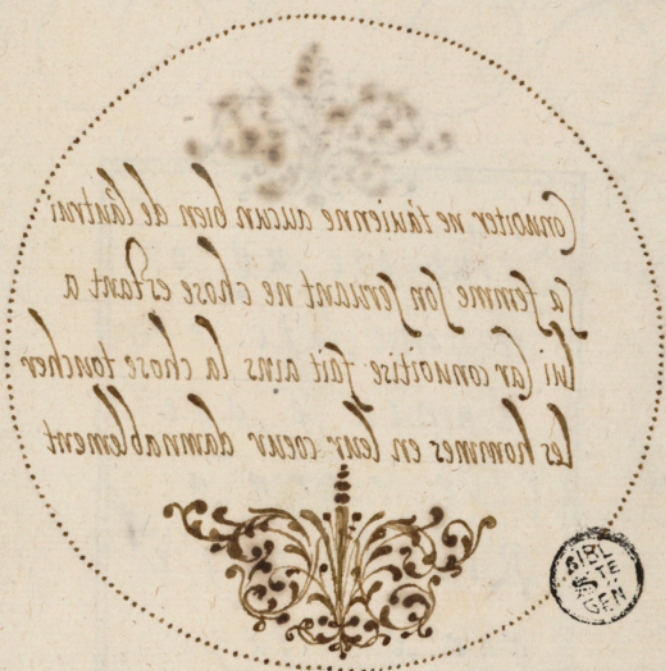 Conuoiter ne tauienne aucun bien de lautrui
Sa femme son seruant ne chose estant a
lui Car conuoitise fait ains la chose toucher
les hommes en leur coeur damnablement